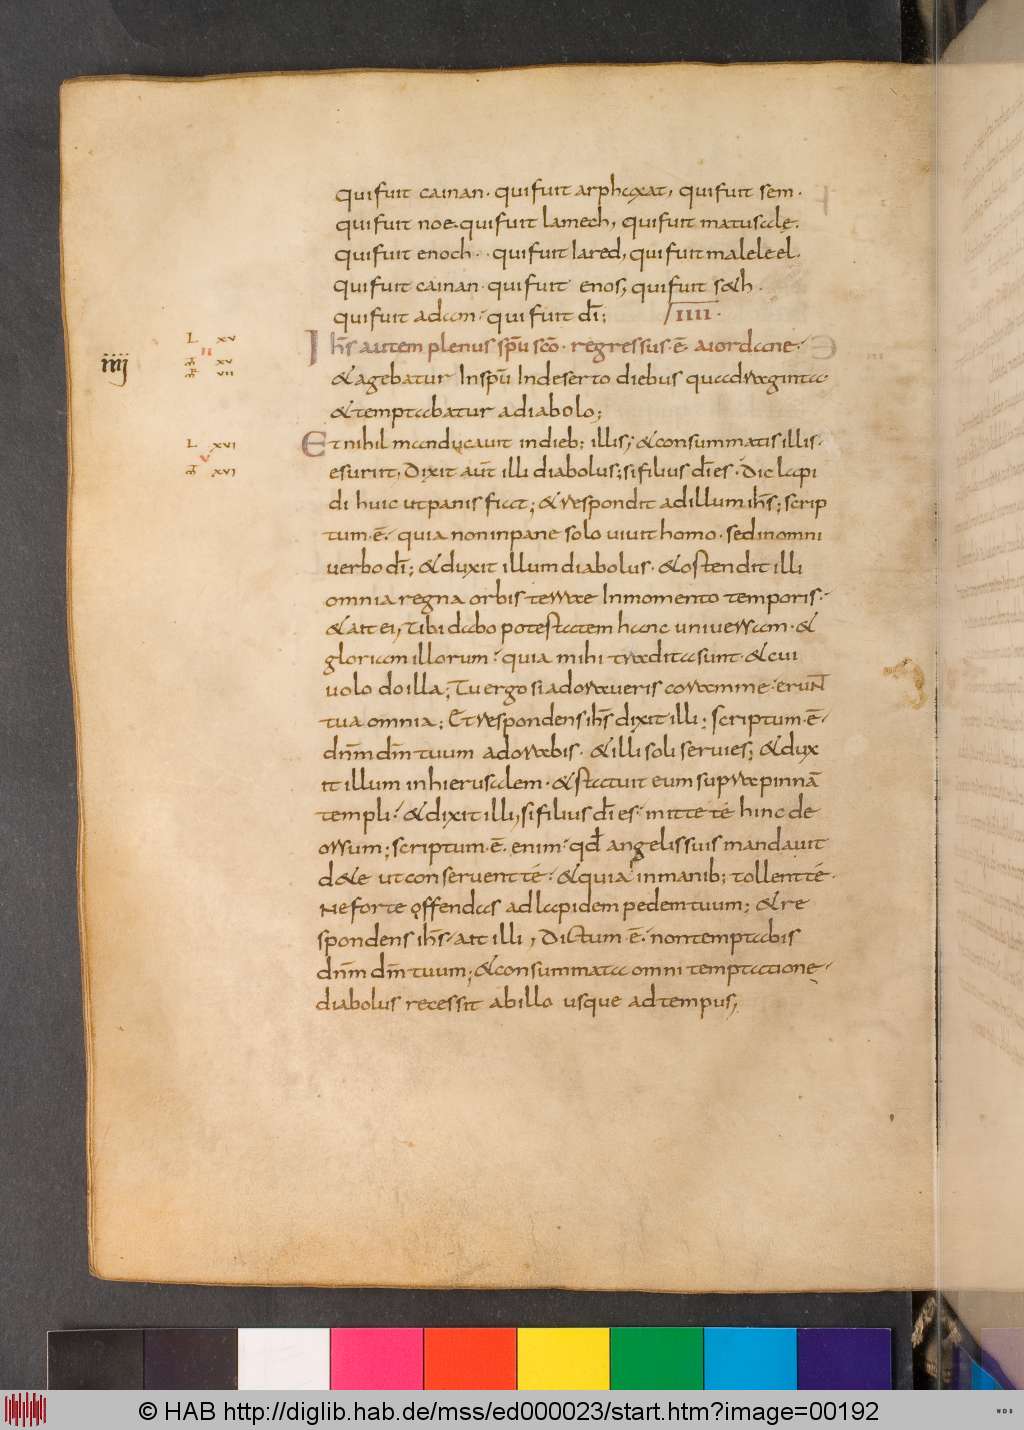 qui fuit cainan · qui fuit arphaxat, qui fuit sem ·
qui fuit noe · qui fuit lamech, qui fuit matusalę ·
qui fuit enoch · qui fuit Iared, qui fuit maleleel ·
qui fuit cainan · qui fuit enos, qui fuit seth ·
qui fuit adam · qui fuit dī; IIII ·
L XV
II
XV
VII
iiij
Ihs̄ autem plenus spū scō · regressus · ē · a iordane ·
& agebatur In spū In deserto diebus quadraginta
& temptabatur a diabolo;
L XVI
V
XVI
Et nihil manducauit in dieb; illis, & consummatis illis ·
esuriit, Dixit aut̄ illi diabolus; si filius dī es · Dic lapi
di huic ut panis fiat; & respondit ad illum ihs̄; scrip
tum · ē · quia non in pane solo uiuit homo · sed in omni
uerbo dī; & duxit illum diabolus · & ostendit illi
omnia regna orbis terrae In momento temporis ·
& ait ei, Tibi dabo potestatem hanc uniuersam · &
gloriam illorum · quia mihi tradita sunt · & cui
uolo do illa; Tu ergo si adoraueris coram me · erunt
tua omnia; Et respondens ihs̄ dixit illi; scriptum · ē ·
dnm̄ dm̄ tuum adorabis · & illi soli seruies; & dux
it illum in hierusalem · & statuit eum supra pinnā
templi · & dixit illi, si filius dī es · mitte té hinc de
orsum; scriptum · ē · enim · qd̄ angelis suis mandauit
de te ut conseruent té · & quia in manib; tollent té ·
Ne forte offendas ad lapidem pedem tuum; & re
spondens ihs̄ · ait illi, Dictum · ē · non temptabis
dnm̄ dm̄ tuum; & consummata omni temptatione ·
diabolus recessit ab illo usque ad tempus,
© HAB http://diglib.hab.de/mss/ed000023/start.htm?image=00192